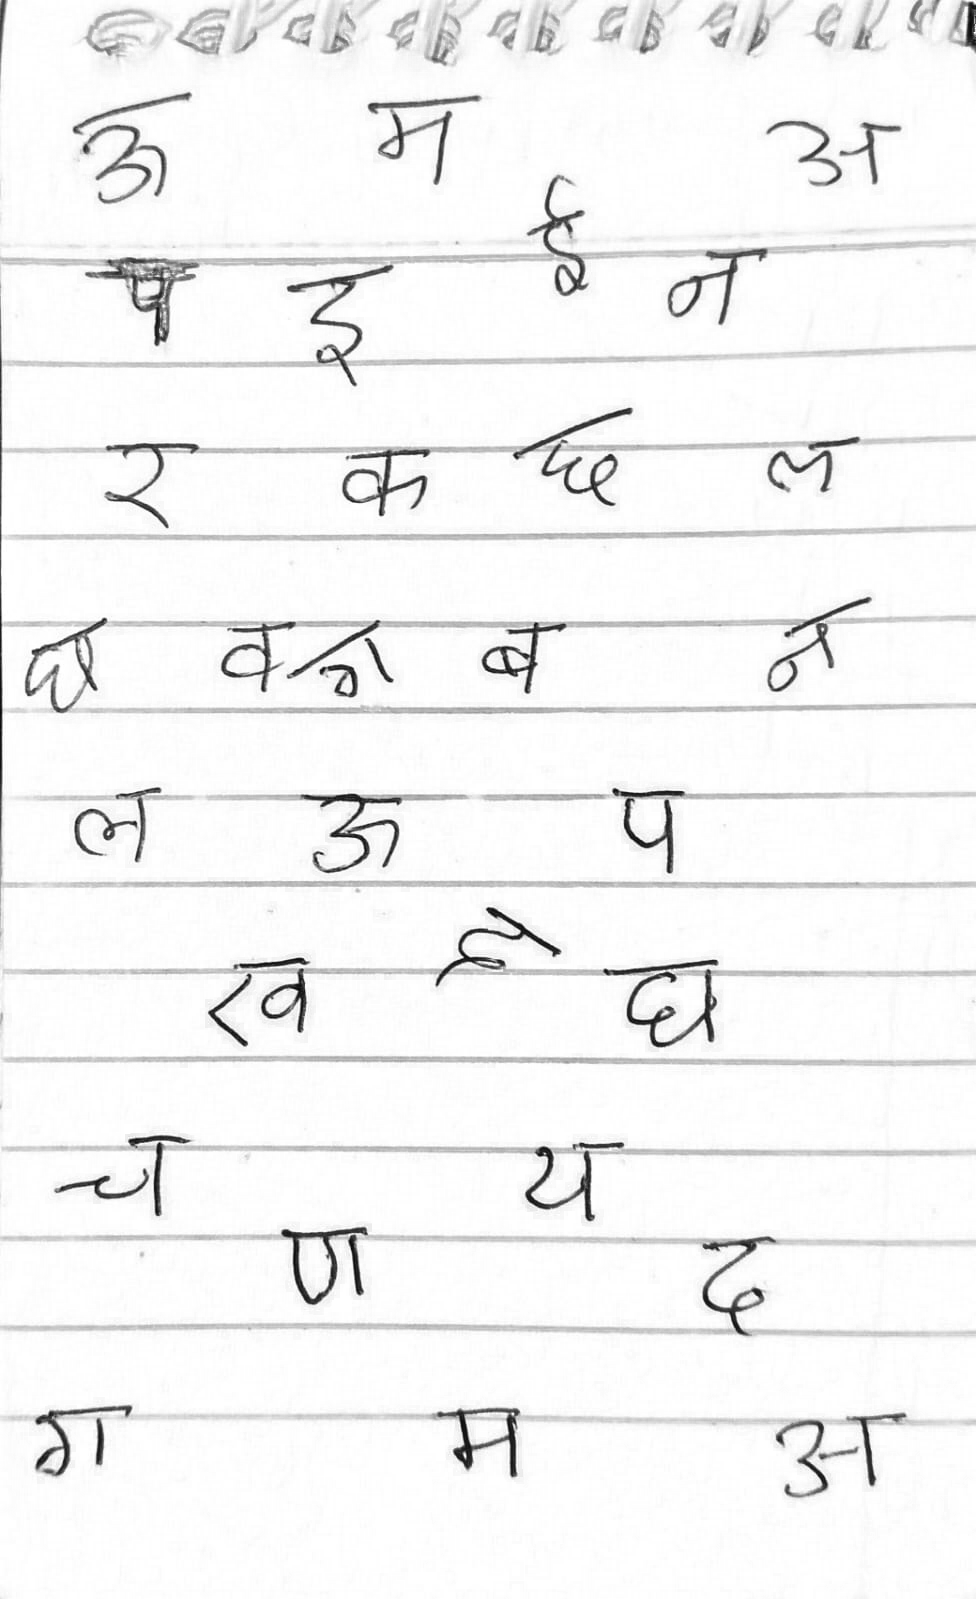 ऊ म अ
प इ ई न
र क छ ल
घ व ग ब न
ल ऊ प
ख घ
च य
ण द
ग म अ